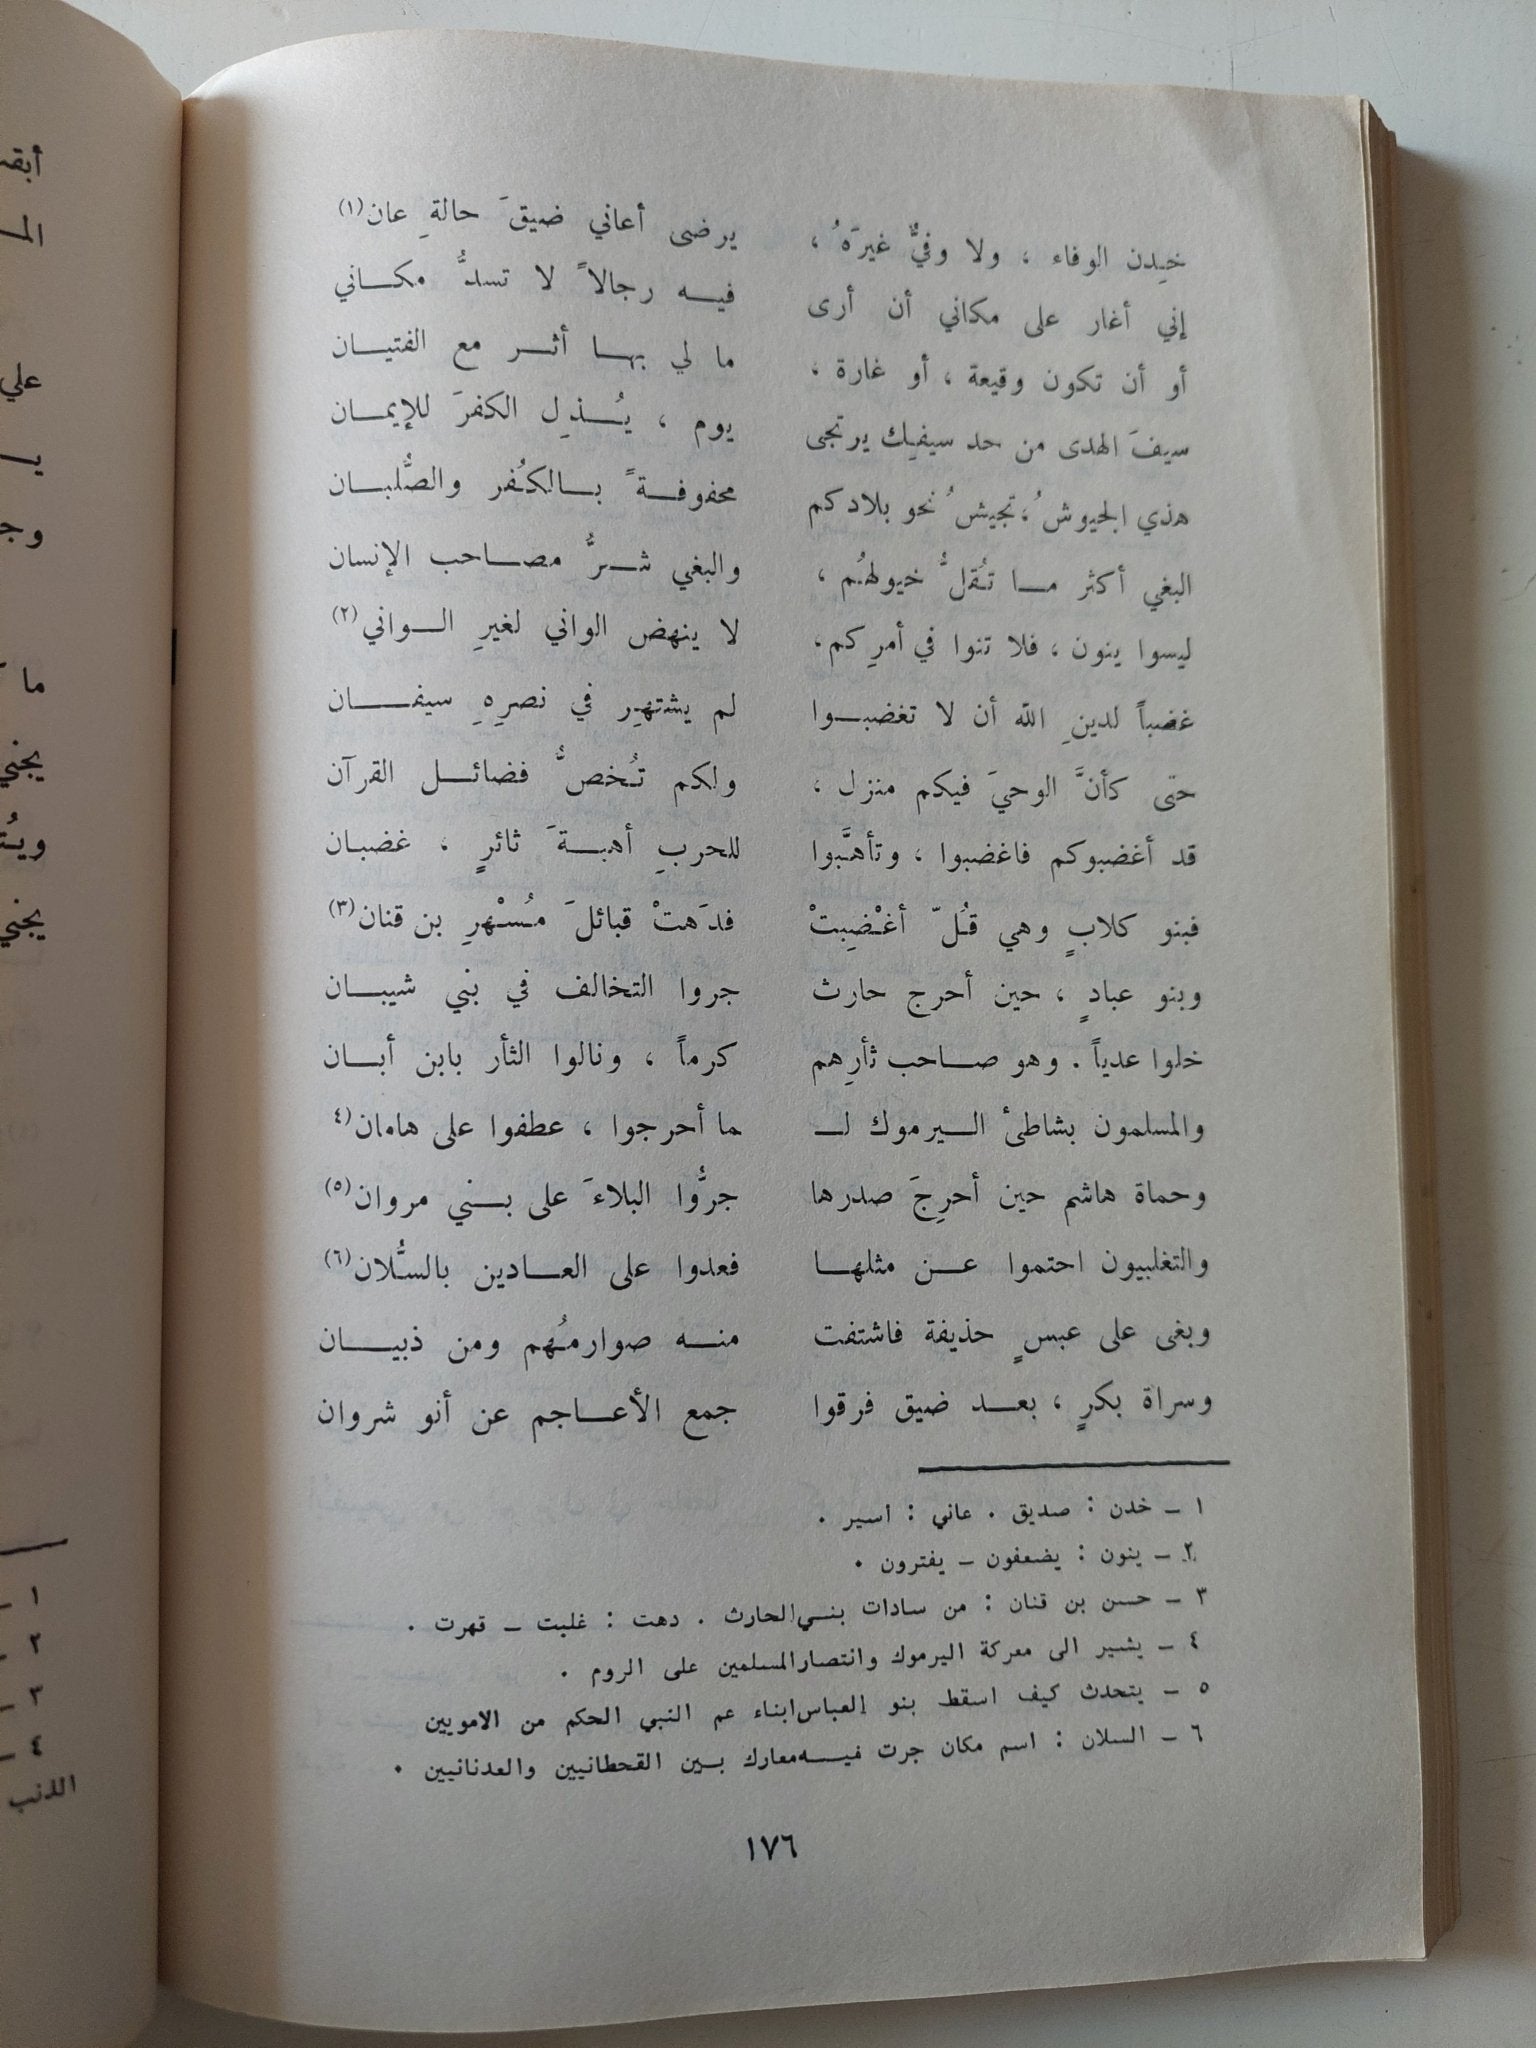 خِدن الوفاء ، ولا وفيٌّ غيرَهُ ، يرضى أعاني ضيقَ حالةِ عان(١)
إني أغار على مكاني أن أرى فيـه رجالاً لا تسدُّ مكـاني
أو أن تكون وقيعة ، أو غارة ، ما لي بهـا أثـر مع الفتيـان
سيفَ الهدى من حد سيفيك يرتجى يوم ، يُـذلِ الكفرَ للإيمـان
هذي الجيوشُ ، تجيشُ نحو بلادكم محفوفـةً بـالكُفر والصُّلبـان
البغي أكثر مـا تُقلُّ خيولهُم ، والبغي شـرُّ مصـاحب الإنسان
ليسوا ينون ، فلا تنوا في أمرِكم ، لا ينهض الواني لغيرِ الـواني(٢)
غضباً لدينِ الله أن لا تغضبـوا لم يشتهِر في نصرِهِ سيفـان
حتى كأنَّ الوحيَ فيكم منزل ، ولكم تُخصُّ فضائـل القرآن
قد أغضبوكم فاغضبوا ، وتأهَّبوا للحربِ أهبـةَ ثائرٍ ، غضبان
فبنو كلابٍ وهي قُلّ أغْضِبتْ فدَهتْ قبائلَ مُسْهرِ بن قنان(٣)
وبنو عبادٍ ، حين أحرج حارث جروا التخالف في بني شيبـان
خلوا عدياً . وهو صـاحب ثأرِهم كرماً ، ونالوا الثأر بابن أبـان
والمسلمون بشاطئ الـيرموك لـ ما أحرجوا ، عطفوا على هامان(٤
وحماة هاشم حين أحرِجَ صدرها جرُّوا البلاءَ على بـني مروان(٥)
والتغلبيون احتموا عـن مثلهـا فعدوا على العـادين بالسُّلان(٦)
وبغى على عبسٍ حذيفة فاشتفت منـه صوارمُهم ومن ذبيـان
وسراة بكرٍ ، بعـد ضيق فرقوا جمع الأعـاجم عن أنو شروان
١ ـ خدن : صديق . عاني : اسير .
٢ ـ ينون : يضعفون ـ يفترون .
٣ ـ حسن بن قنان : من سادات بنـي الحارث . دهت : غلبت ـ قهرت .
٤ ـ يشير الى معركة اليرموك وانتصار المسلمين على الروم .
٥ ـ يتحدث كيف اسقط بنو العباس ابناء عم النبي الحكم من الامويين
٦ ـ السلان : اسم مكان جرت فيـه معارك بـين القحطانيين والعدنانيين .
١٧٦
أبقـ
المـ
علي
يـ
وجـ
ما
يجني
ويُـ
يجني
١ ـ
٢ ـ
٣ ـ
٤ ـ
الذنب